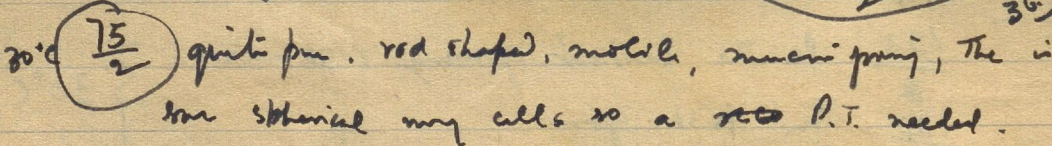 30°C 75/2 quite pure. rod shaped, motile, The
some spherical cells so a P.T. needed.